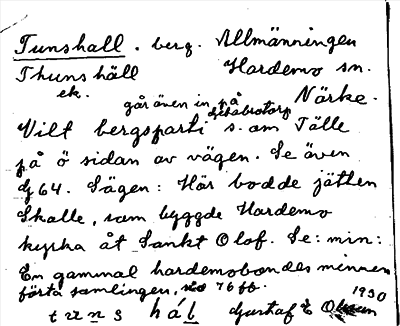 Tunshall. berg. Allmänningen
Thunshäll Hardemo sn.
ek. Närke.
går även in på Götabrotorp
Vilt bergsparti s. om Tälle
på ö sidan av vägen. Se även
G 64. Sägen: Här bodde jätten
Skalle, som byggde Hardemo
kyrka åt Sankt Olof. Se: min:
En gammal hardemobondes minnen
förta samlingen, sid 76 ff. 1930
tuns hál Gustaf E Olsson